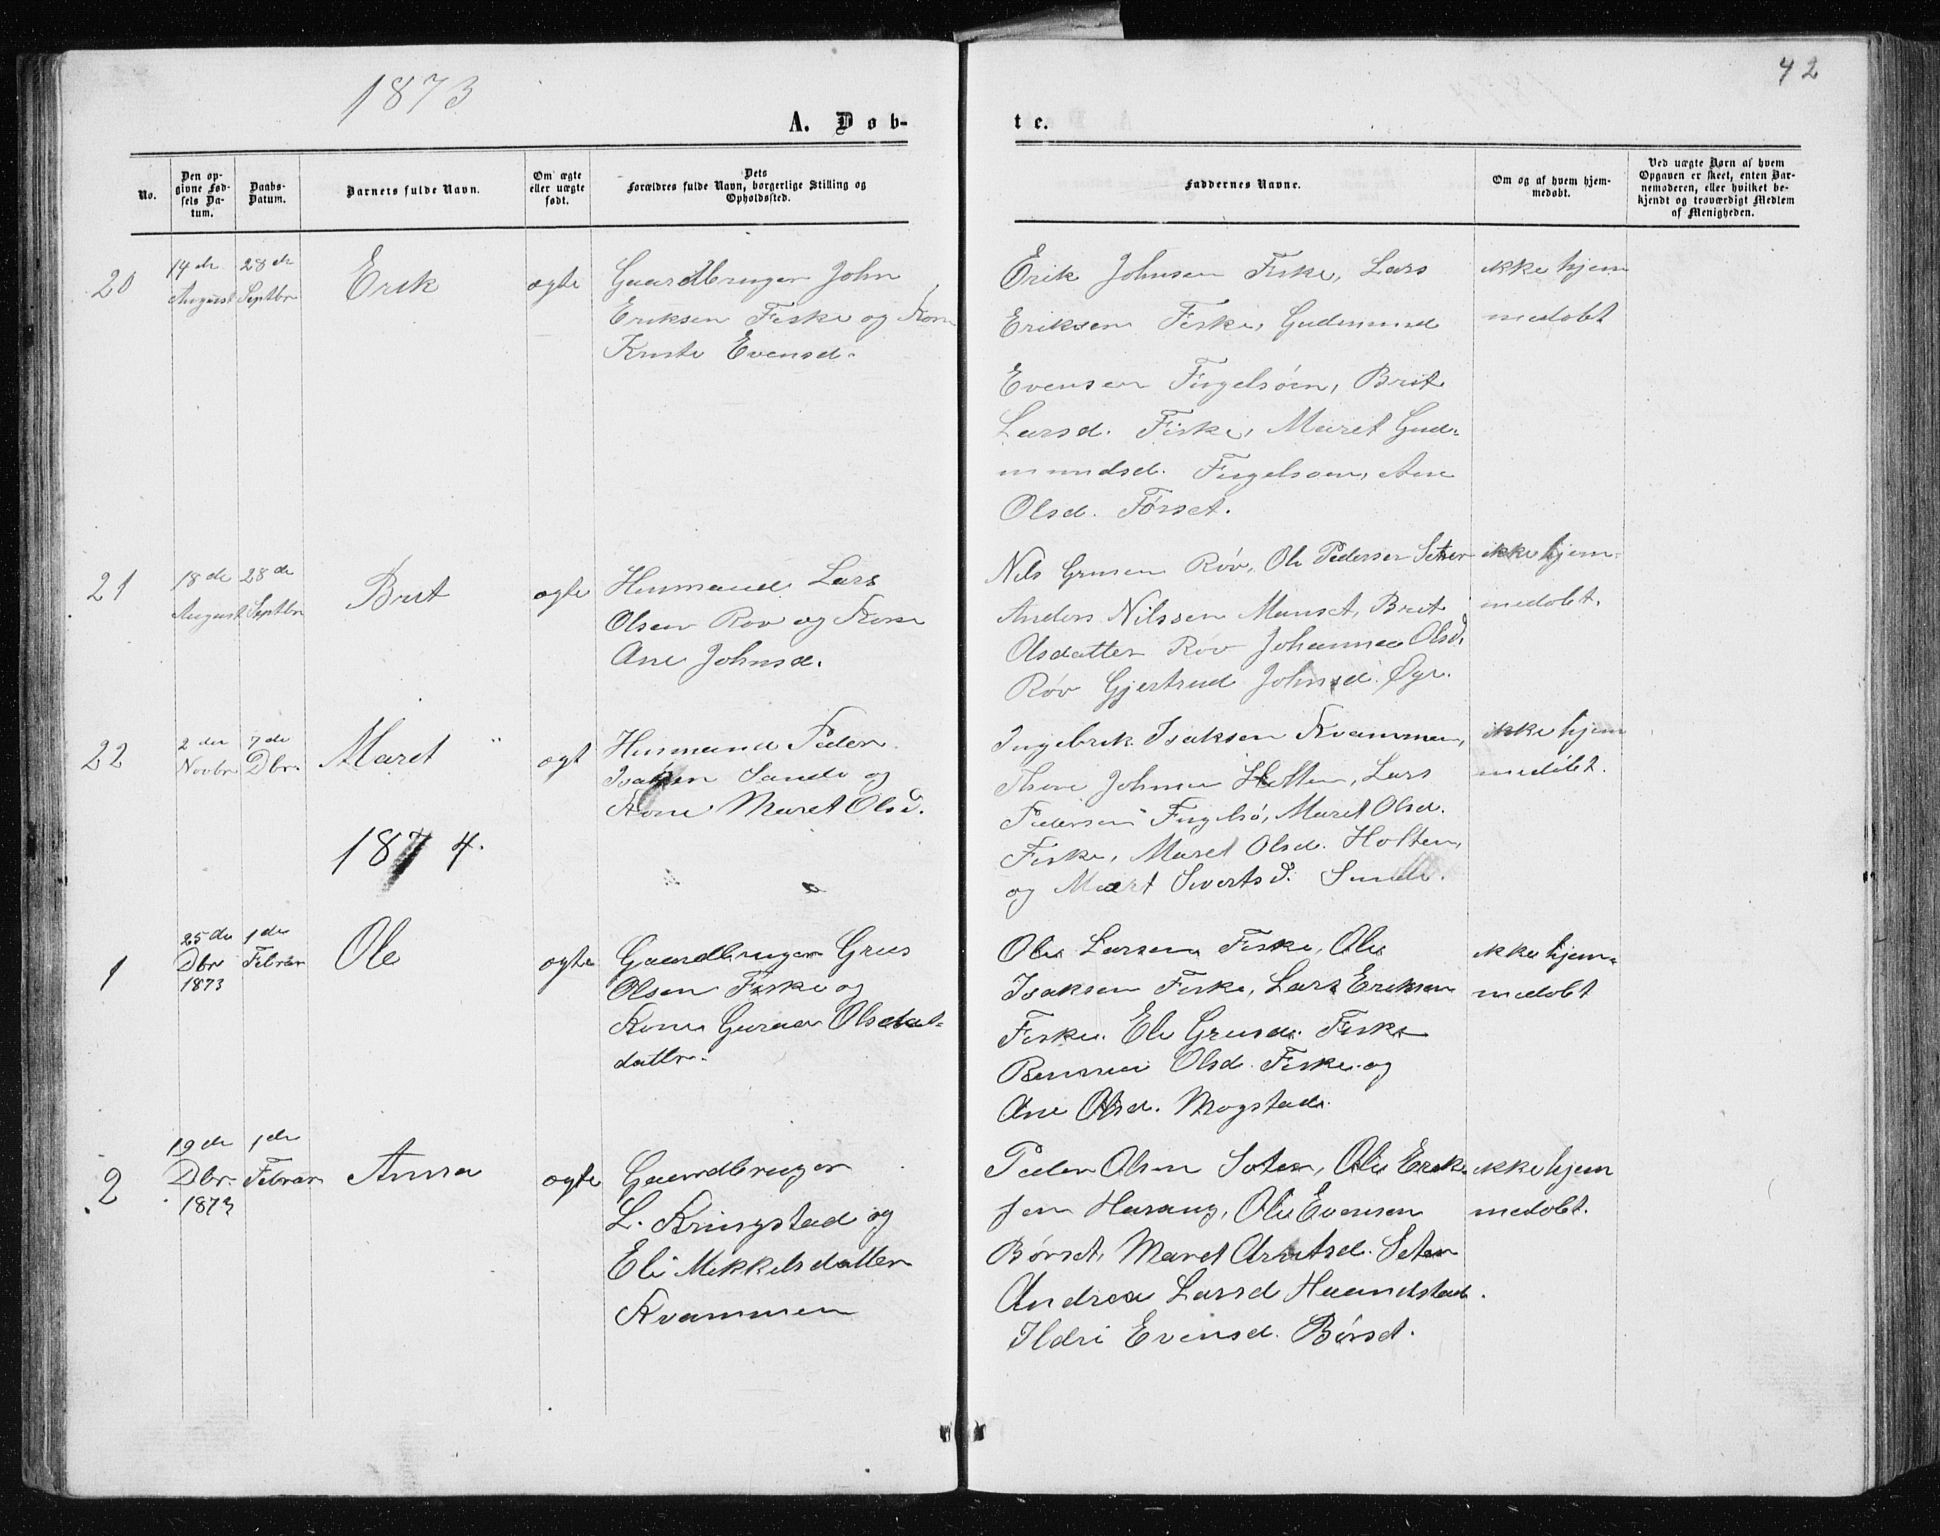 1873
42
A. Døb-
te.
No.
Den op-
givne Fød-
sels Da-
tum.
Daabs-
Datum.
Barnets fulde Navn.
Om ægte
eller uægte
født.
Dets
Forældres fulde Navn, borgerlige Stilling og
Opholdssted.
Faddernes Navne.
Om og af hvem hjem-
medøbt.
Ved uægte Børn af hvem
Opgaven er skeet, enten Bar-
nemoderen, eller hvilket be-
kjendt og troværdigt Medlem
af Menigheden.
20
14de
August
28de
Septbr
Erik
ægte
Gaardbruger John
Eriksen Fiske og Kone
Evensd.
Erik Johnsen Fiske, Lars
Eriksen Fiske, Gudmund
Evensen Fugelsøen, Brit
Larsd. Fiske, Maret Gud-
mundsd. Fugelsøen, Ane
Olsd. Førset.
ikke hjem
medøbt
21
18de
August
28de
Septbr
Brit
ægte
Husmand Lars
Olsen Røv og Kone
Ane Johnsd.
Nils Grusen Røv, Ole Pedersen Seter
Anders Nilssen Manset, Brit
Olsdatter Røv Johanna Olsd.
Røv Gjertrud Johnsd. Øye.
ikke hjem-
medøbt.
22
2den
Novbr
7de
Dbr.
Maret
ægt
Husmand Peder
Isaksen Sande og
Kone Maret Olsd.
Ingebrik Isaksen Kvammen,
Thore Johnsen Holten, Lars
Pedersen Fugelsø, Maret Olsd.
Fiske, Maret Olsd. Holten,
og Maret Sivertsd. Sande.
ikke hjem
medøbt.
1874.
1
25de
Dbr
1873
1de
Februar
Ole
ægte
Gaardbruger Grus
Olsen Fiske og
Kone Guraa Olsdat-
datter.
Ole Larsen Fiske, Ole
Isaksen Fiske, Lars Eriksen
Fiske. Eli Grusd. Fiske
Olsd. Fiske og
Ane Olsd. Mogstad.
ikke hjem-
medøbt
2
19de
Dbr.
1873
1de
Februar
Anna
ægte
Gaardbruger
L. Kringstad og
Eli Mikkelsdatter
Kvammen
Peder Olsen Seter, Ole Erik
sen Harang, Ole Evensen
Børset, Maret Arntsd. Seter
Andrea Larsd Haandstad.
Ildri Evensd. Børset.
ikke hjem
medøbt.